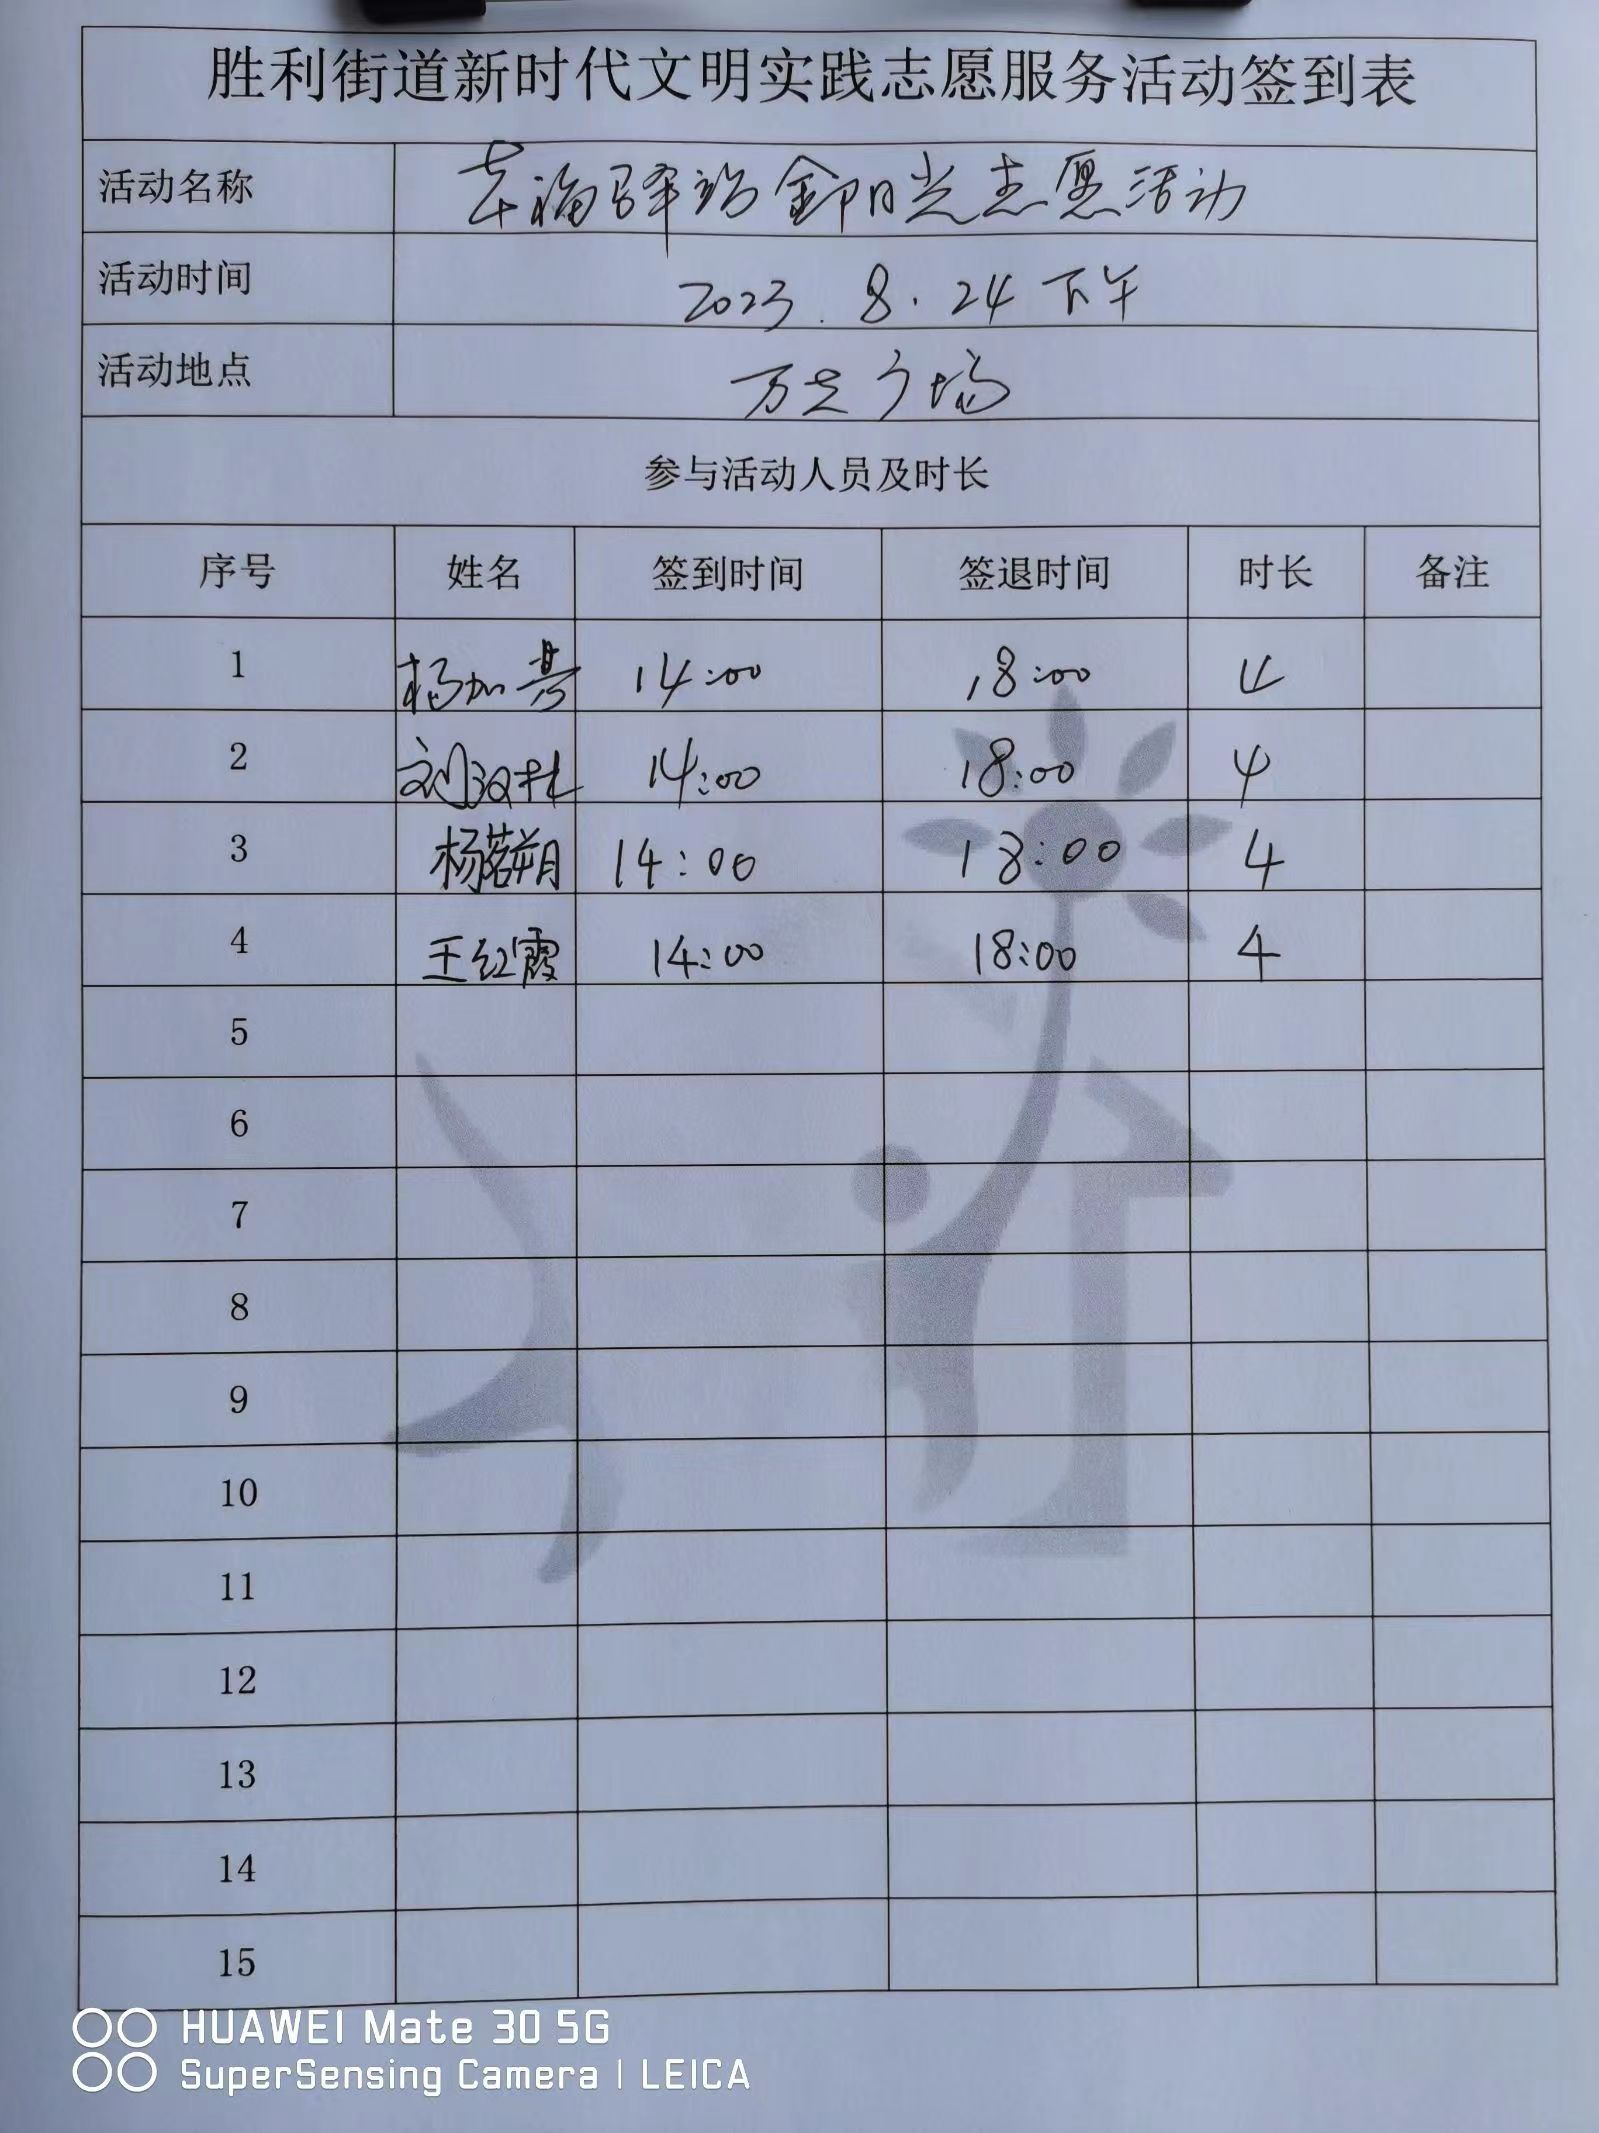 胜利街道新时代文明实践志愿服务活动签到表
活动名称 幸福驿站金阳光志愿活动
活动时间 2023.8.24下午
活动地点 万达广场
参与活动人员及时长
序号 姓名 签到时间 签退时间 时长 备注
1 杨加芳 14:00 18:00 4
2 刘汉杜 14:00 18:00 4
3 杨蕊朔 14:00 18:00 4
4 王红霞 14:00 18:00 4
5
6
7
8
9
10
11
12
13
14
15
HUAWEI Mate 30 5G
SuperSensing Camera | LEICA